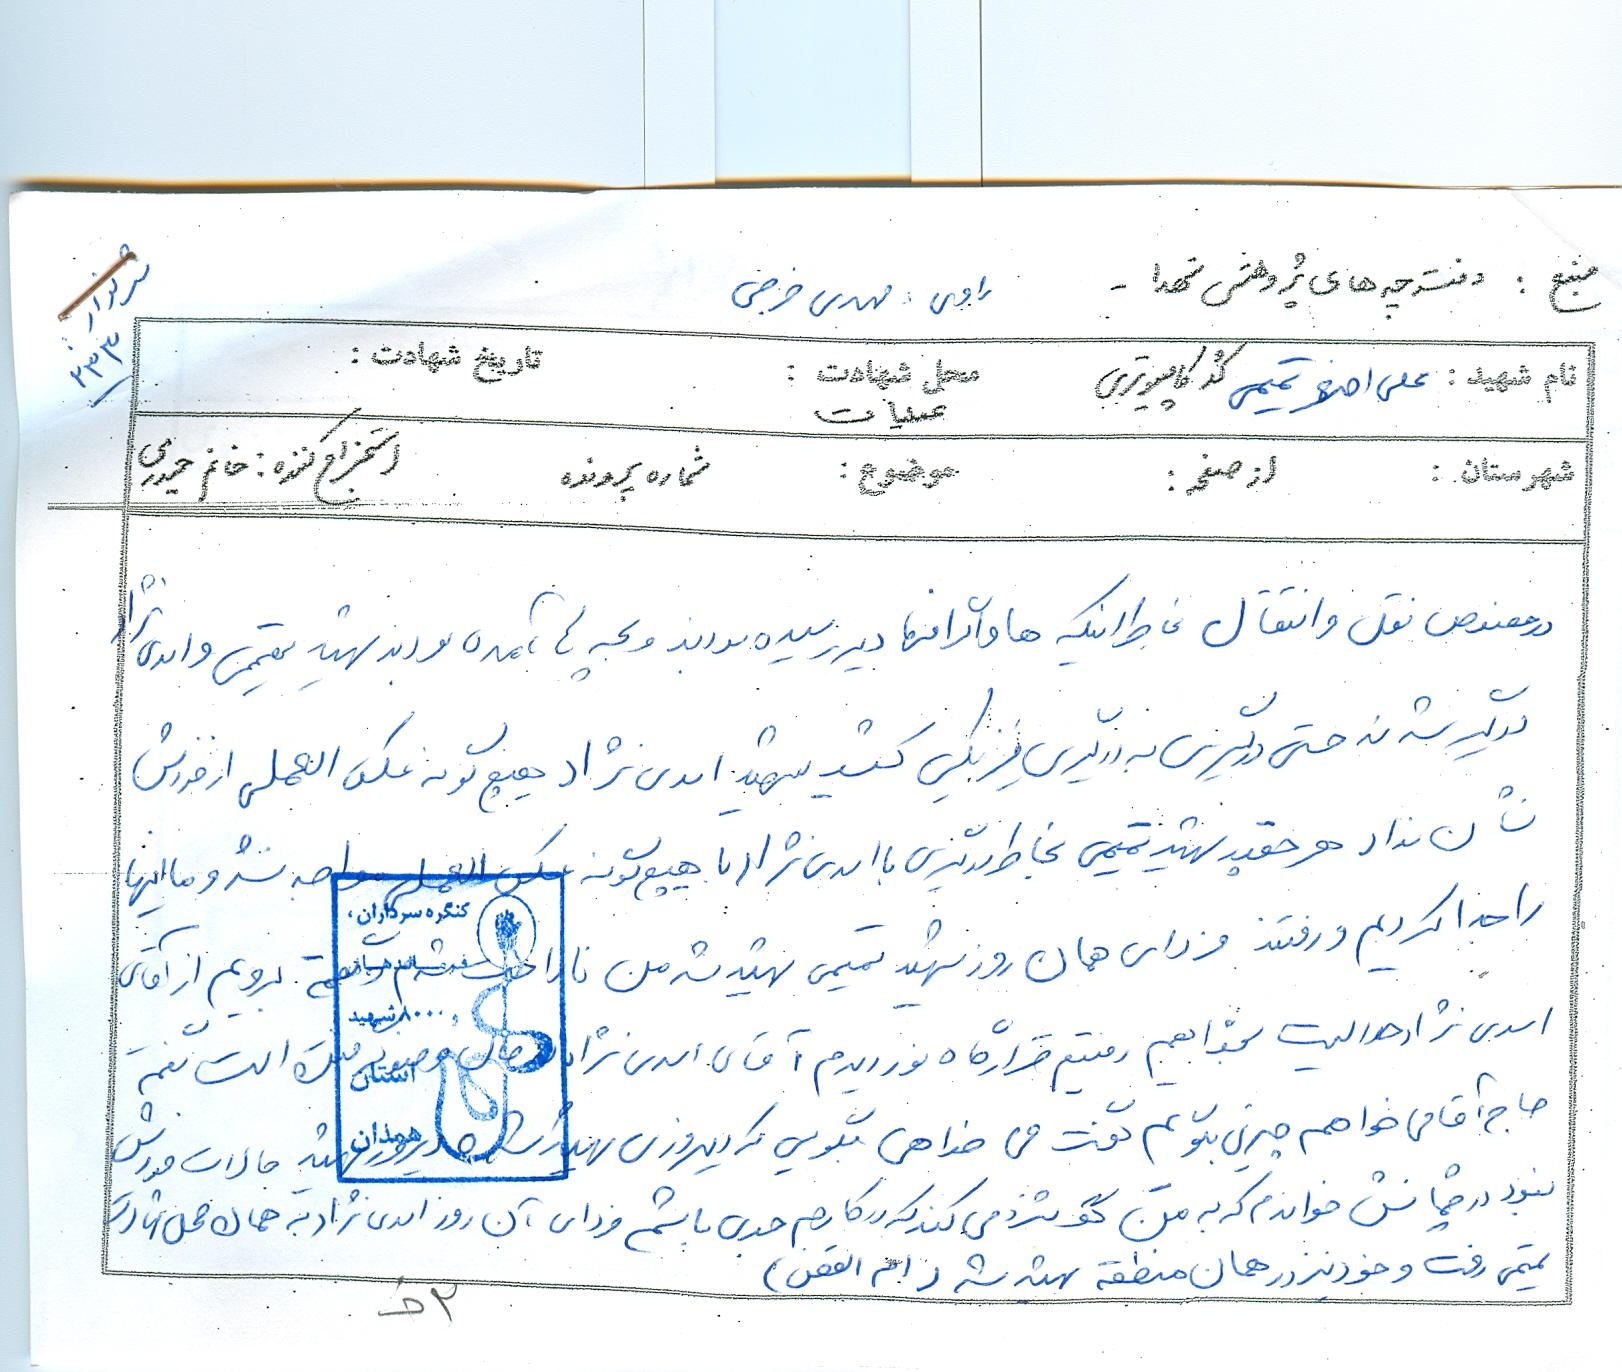 منبع : دفترچه های پژوهشی شهدا - راوی : مهدی فرجی
۲۳۳
نام شهید : علی اصغر تمیمی کد کامپیوتری محل شهادت : تاریخ شهادت :
عملیات
شهرستان : از صفحه : موضوع : شماره پرونده استخراج کننده : خانم حیدری
درخصوص نقل و انتقال بخاطر اینکه دیر رسیده بودند و بچه ها آمده بودند شهید تمیمی و اسدی نژاد
درگیر شدند حتی درگیری به درگیری فیزیکی کشید شهید اسدی نژاد هیچ گونه عکس العملی از خودش
نشان نداد هر چقدر شهید تمیمی بخاطر درگیری با اسدی نژاد با هیچ گونه عکس العملی مواجه نشد و ما اینها
را جدا کردیم و رفتند فردای همان روز شهید تمیمی شهید شد من ناراحت شدم گفتم برویم از آقای
اسدی نژاد حلالیت بخواهیم رفتیم قرارگاه نور دیدم آقای اسدی نژاد است گفتم
حاج آقا می خواهم چیزی بگویم گفت می خواهی بگویی که دیروزی شهید شد دیروز شهید حالات خودش
نبود در چشمانش خواندم که به من گوشزد می کند که در کارم جدی باشم فردای آن روز اسدی نژاد به همان محل شهادت
تمیمی رفت و خود نیز در همان منطقه شهید شد (ام القصر)
کنگره سرداران،
۸۰۰۰ شهید
استان
همدان